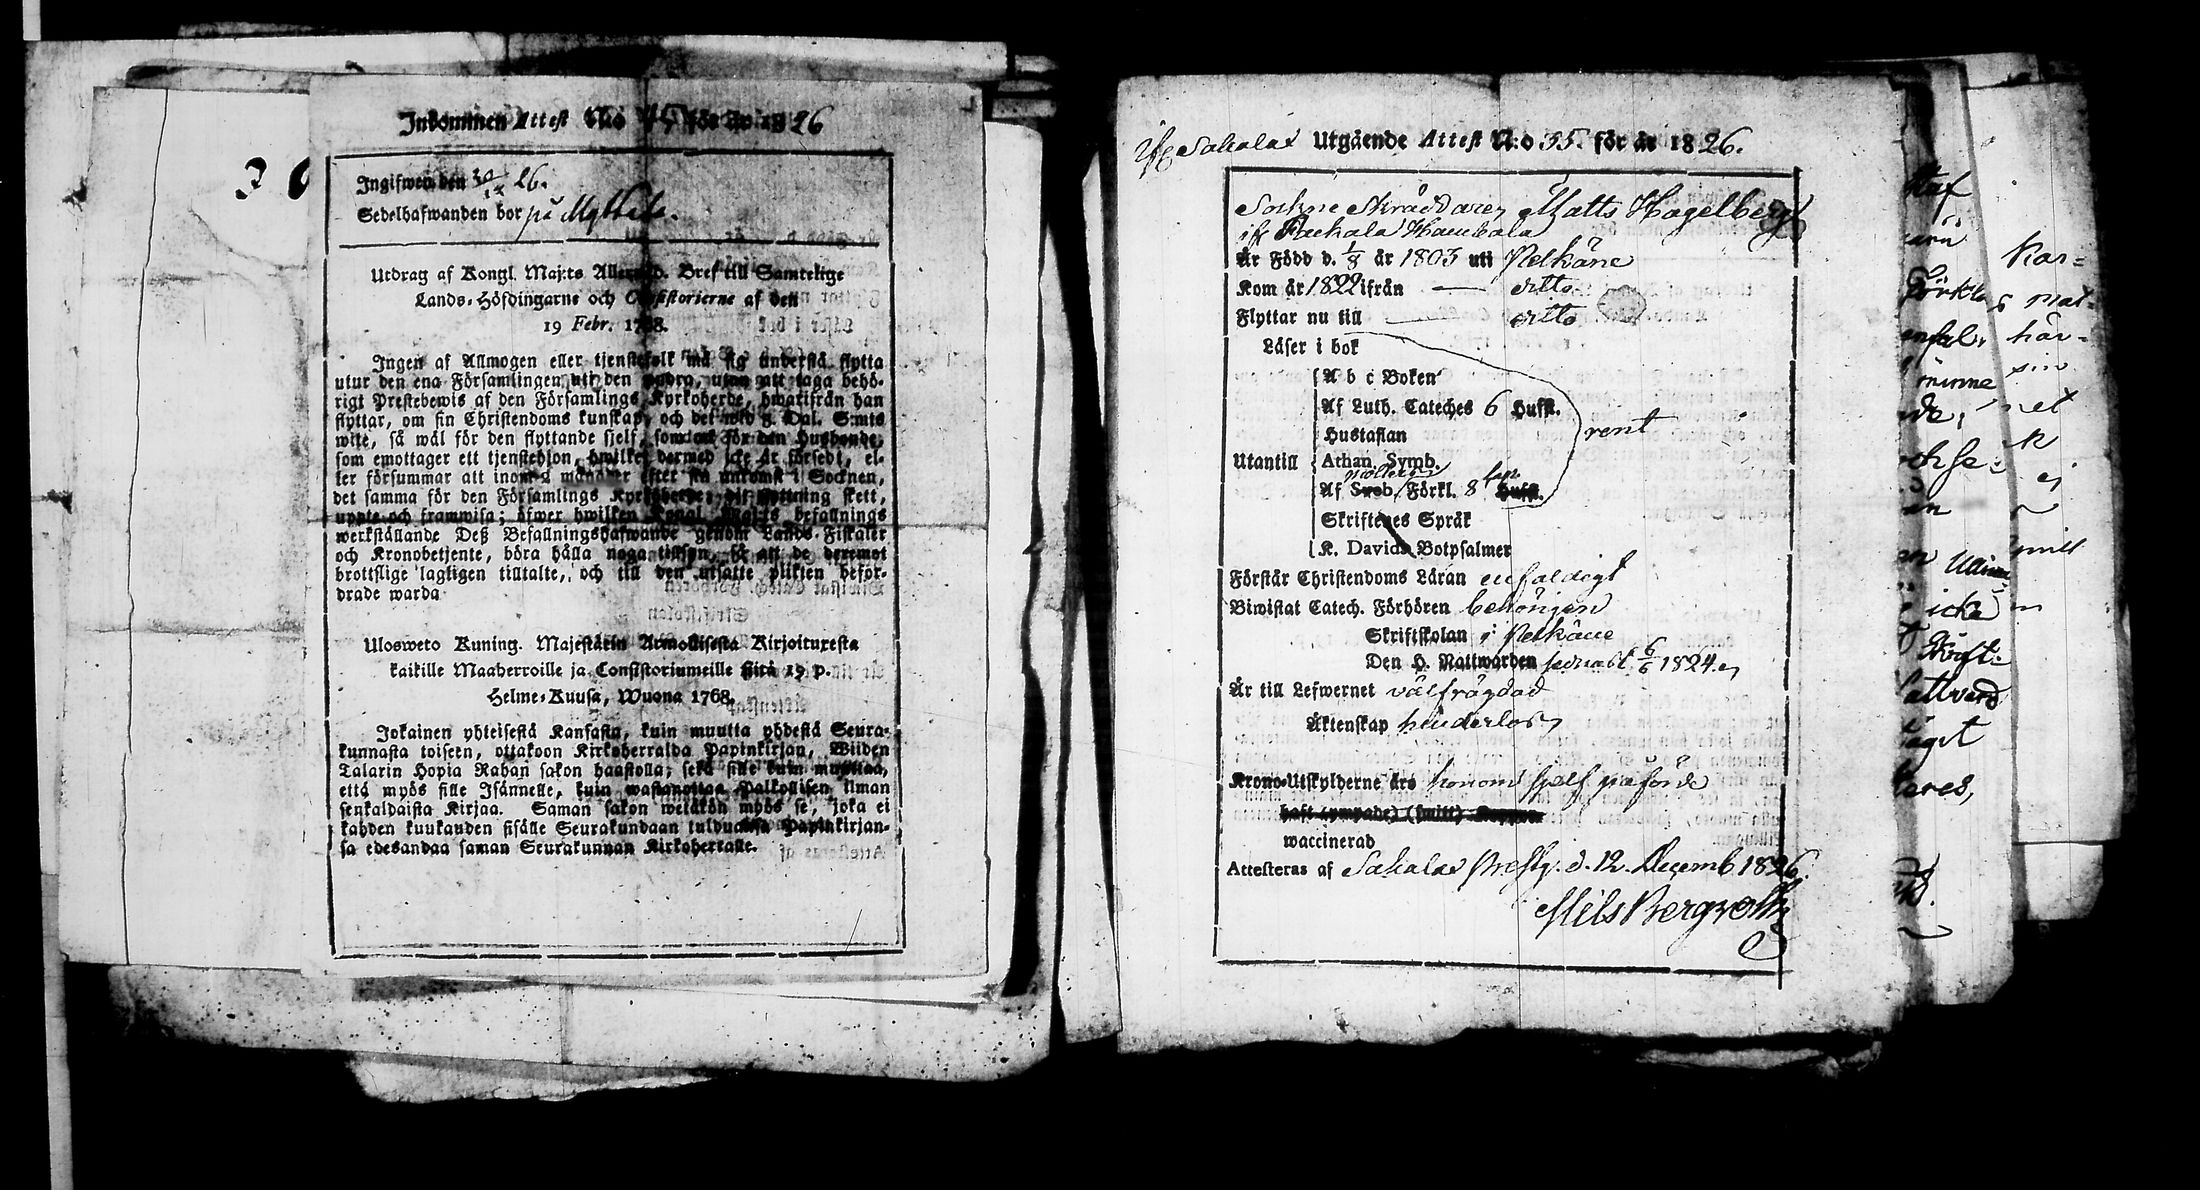 30
Inkommen Attest N:o 45 för år 1826
Ingifwen den 30/12 26.
Sedelhafwanden bor på
Utdrag af Kongl. Maj:ts Allernåd. Bref till Samtelige
Lands-Höfdingarne och Consistorierne af den
19 Febr. 1768.
Ingen af Allmogen eller tjenstefolk må sig understå flytta
utur den ena Församlingen uti den andra, utan att taga behö-
rigt Prestebewis af den Församlings Kyrkoherde, hwarifrån han
flyttar, om sin Christendoms kunskap, och det wid 5. Dal. S:mts
wite, så wäl för den flyttande sjelf, som ock för den Husbonde,
som emottager ett tjenstehjon, hwilket dermed icke är försedt, el-
ler försummar att inom 2 månader efter sin ankomst i Socknen,
det samma för den Församlings Kyrkoherde, dit flyttning skett,
uppte och framwisa; öfwer hwilken Kongl. Maj:ts befallnings
werkställande Deß Befallningshafwande genom Lands-Fiskaler
och Kronobetjente, böra hålla noga tillsyn, så att de deremot
brottslige lagligen tilltalte, och till den utsatte plikten befor-
drade warda
Ulosweto Kuning. Majestätin Armollisesta Kirjoituxesta
kaikille Maaherroille ja Consistoriumeille siitä 19 p.
Helme-Kuusa, Wuona 1768.
Jokainen yhteisestä Kansasta, kuin muutta yhdestä Seura-
kunnasta toiseen, ottakoon Kirkoherralda Papinkirjan, Wiiden
Talarin Hopia Rahan sakon haastolla, sekä sille kuin muuttaa,
että myös sille Isännelle, kuin wastanottaa Palkollisen ilman
senkaldaista Kirjaa. Saman sakon wetäkön myös se, joka ei
kahden kuukauden sisälle Seurakundaan tulduansa Papinkirjan-
sa edesandaa saman Seurakunnan Kirkoherralle.
Sahalax Utgående Attest N:o 35. för år 1826.
Sockne Skräddaren Matts Hagelberg
ifr Packala Haukala
Är Född d. 1/8 år 1803 uti Pelkäne
Kom år 1822 ifrån — ditto
Flyttar nu till — ditto
Läser i bok
Utantill
A b c Boken
Af Luth. Cateches 6 Hufst.
Hustaflan
Athan. Symb.
Af Sweb. Förkl. 8 Hufst.
rent
Skriftenes Språk
K. Davids Botpsalmer
Förstår Christendoms Läran enfaldigt
Biwistat Catech. Förhören behörigen
Skriftskolan i Pelkäne
Den H. Nattwarden senast 6/6 1824.
Är till Lefwernet välfrägdad
Äktenskap hinderlös
Krono-Utskylderne äro honom sjelf påförde
haft (ympade) (smitt) Koppor.
waccinerad
Attesteras af Sahalax Prestg. d. 12. Decemb 1826.
Nils Bergroth
Kar=
mat=
här=
sin
net
ej
minne
icke
Skrift:
attvard